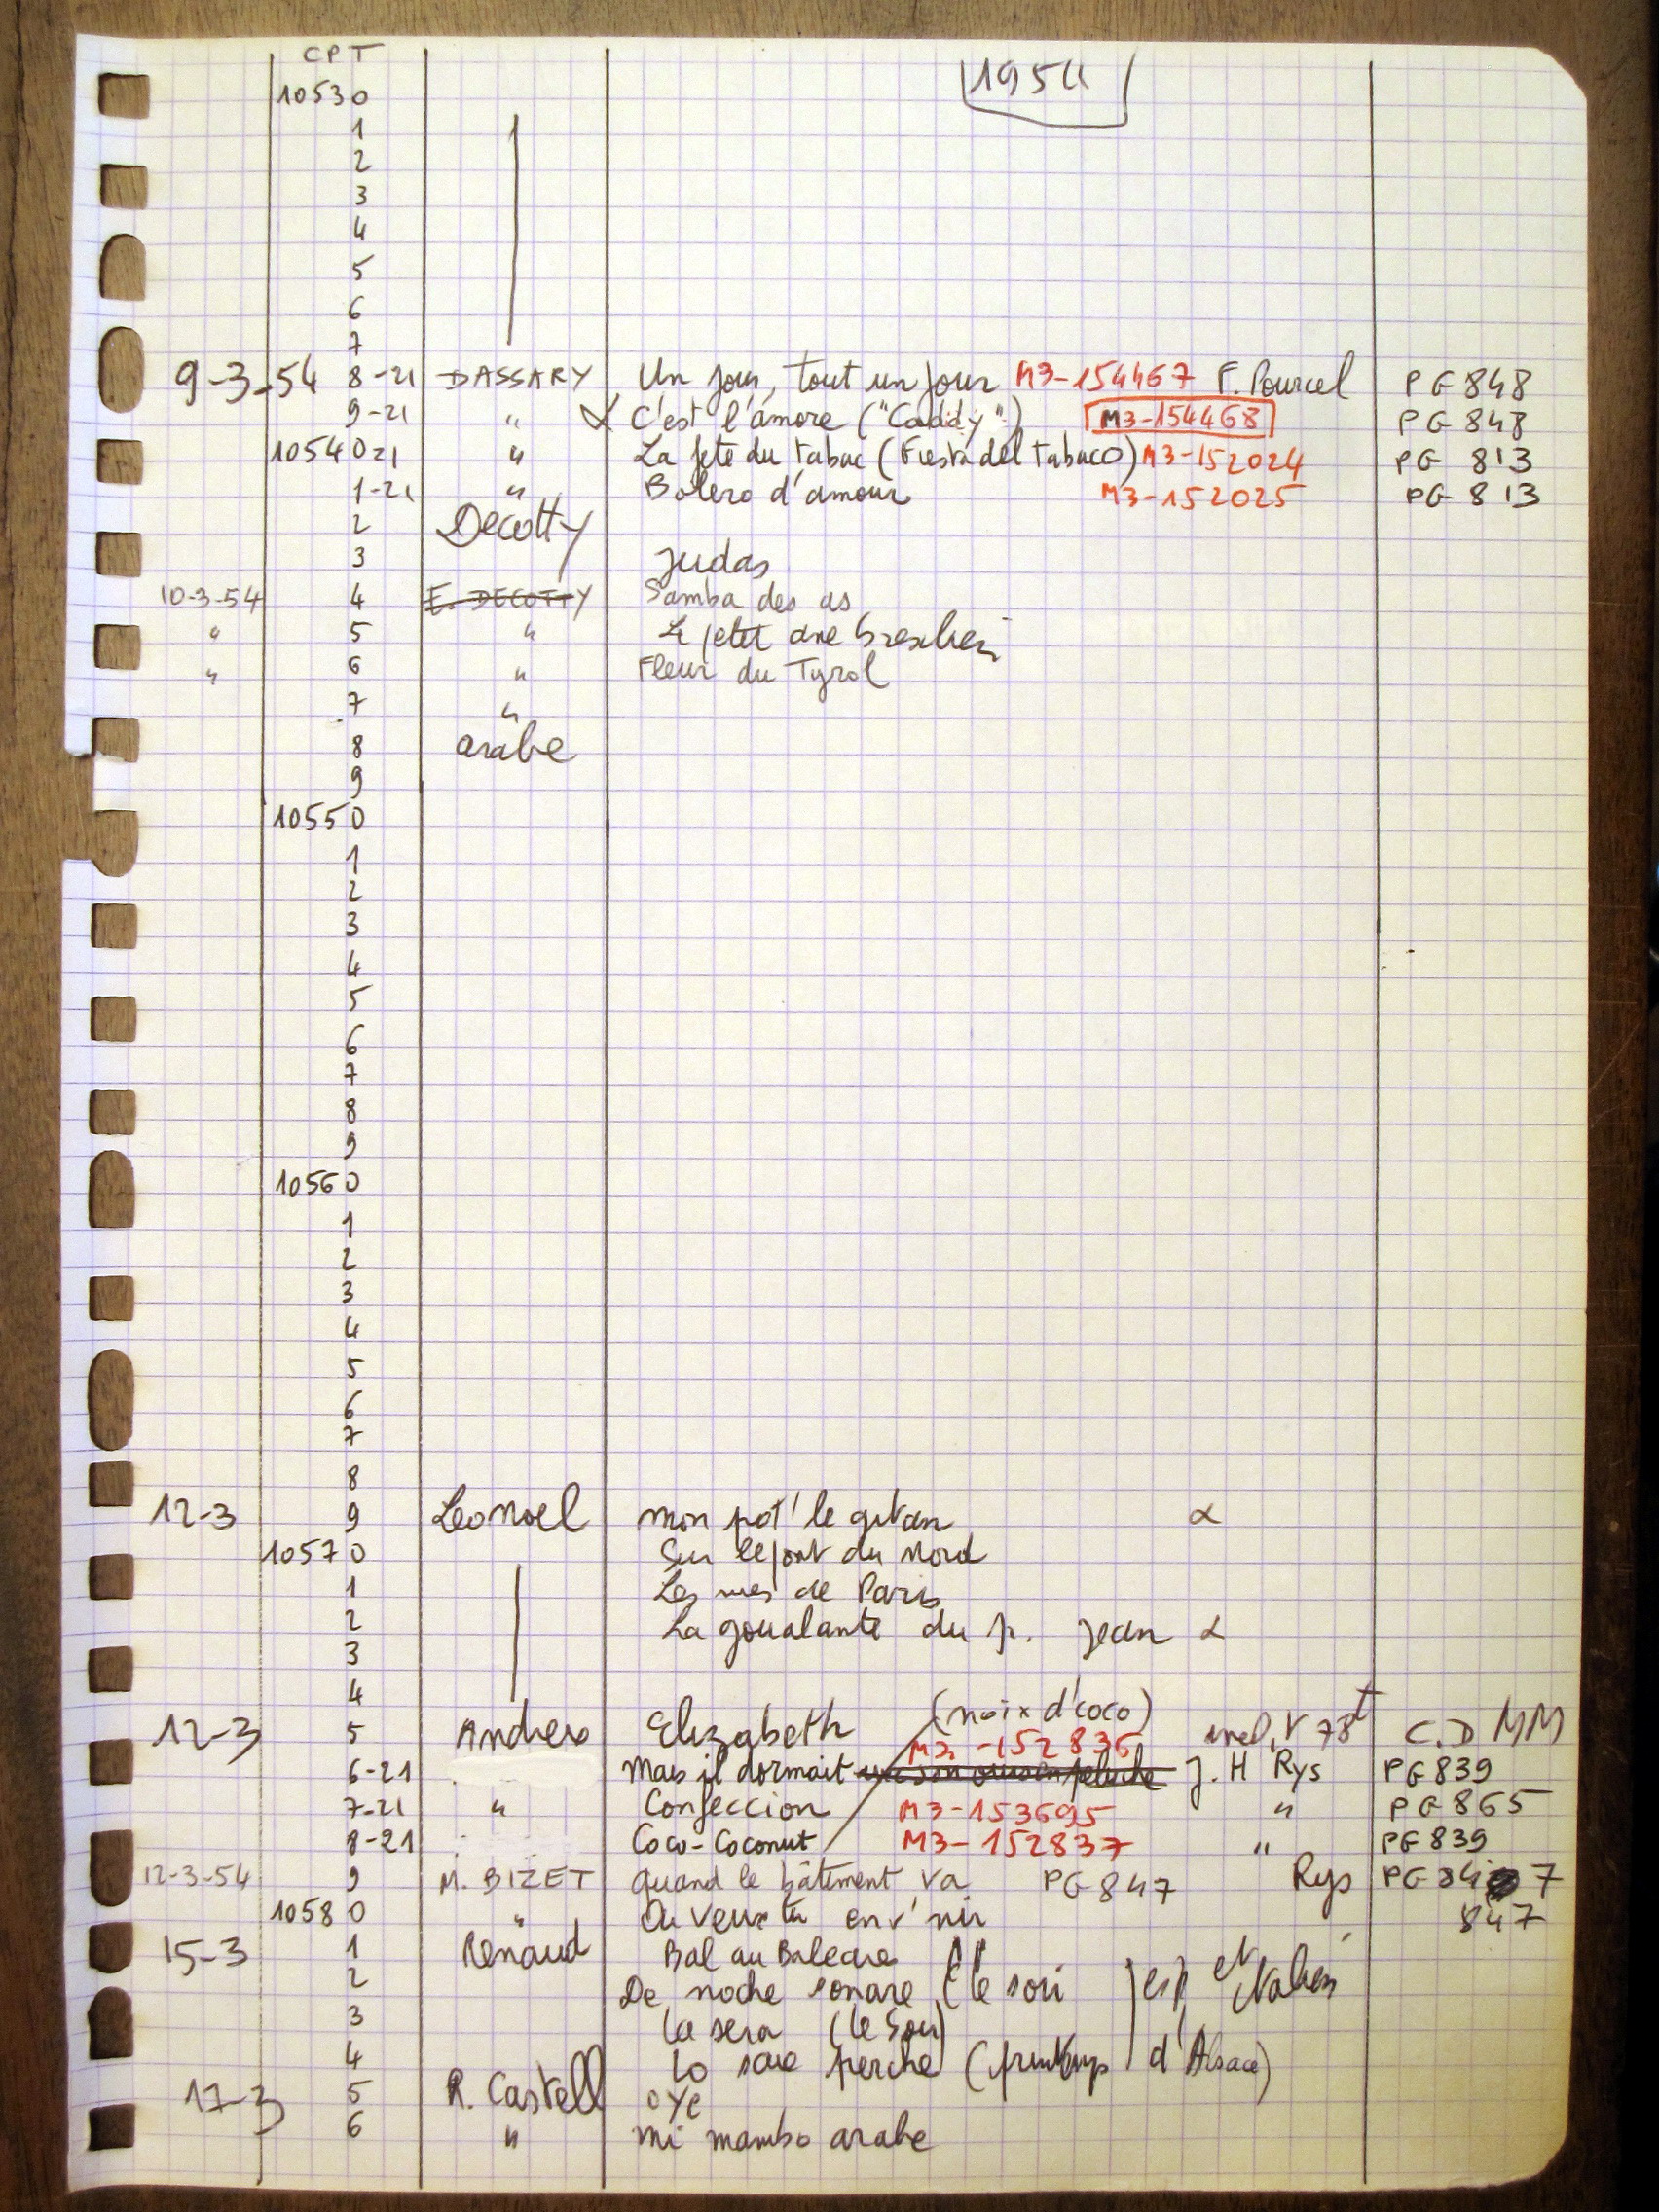 CPT
1954
10530
1
2
3
4
5
6
7
9-3-54 8-21 DASSARY Un jour, tout un jour M3-154467 F. Pourcel PG 848
9-21 " C'est l'amore ("Caddy") M3-154468 PG 848
10540 21 " La fete du tabac (Fiesta del tabaco) M3-152024 PG 813
1-21 " Bolero d'amour M3-152025 PG 813
2 Decotty
3 Judas
10-3-54 4 E. DECOTTY Samba des as
" 5 " Le petit ane bresilien
" 6 " Fleur du Tyrol
7 "
8 arabe
9
10550
1
2
3
4
5
6
7
8
9
10560
1
2
3
4
5
6
7
8
12-3 9 Leo Noel mon pot' le gitan α
10570 Sur le pont du Nord
1 Les rues de Paris
2 La goualante du p. Jean α
3
4
(noix d'coco)
12-3 5 Andrex Elizabeth ined, V 78t C.D MM
M3-152836
6-21 Mais il dormait J. H Rys PG 839
7-21 " Confeccion M3-153695 " PG 865
8-21 Coco-Coconut M3-152837 " PG 839
12-3-54 9 M. BIZET Quand le bâtiment va PG 847 Rys PG 84 7
10580 " Ou veux tu en v'nir 847
15-3 1 Renaud Bal au Baleare
2 De noche sonare (le soir } esp et italien
3 La sera (le Soir)
4 Lo sai perche (printemps d'Alsace)
17-3 5 R. Castell Oye
6 " mi mambo arabe